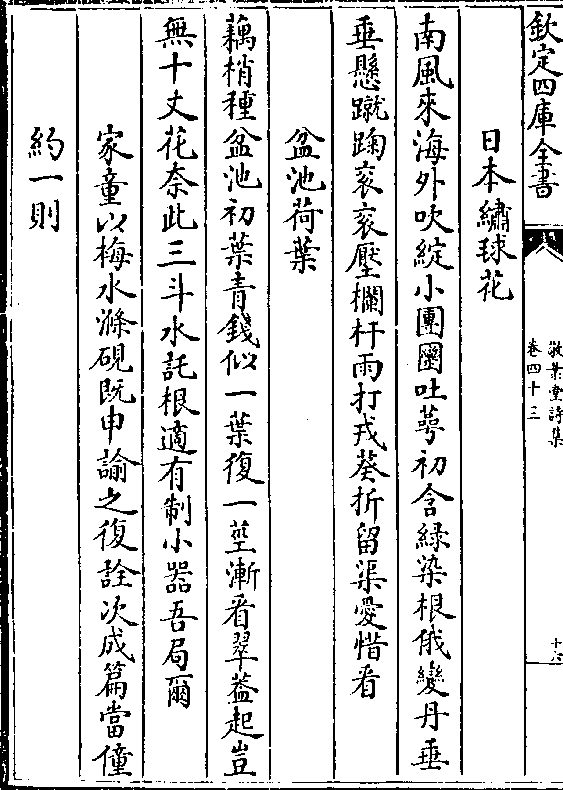 欽定四庫全書
敬業堂詩集
卷四十三
十六
日本繡球花
南風來海外吹綻小團圞吐萼初含緑染根俄變丹垂
垂懸蹴踘衮衮壓欄杆雨打戎葵折留渠愛惜看
盆池荷葉
藕梢種盆池初葉青錢似一葉復一莖漸看翠葢起豈
無十丈花奈此三斗水託根適有制小器吾局爾
家童以梅水滌硯既申諭之復詮次成篇當僮
約一則